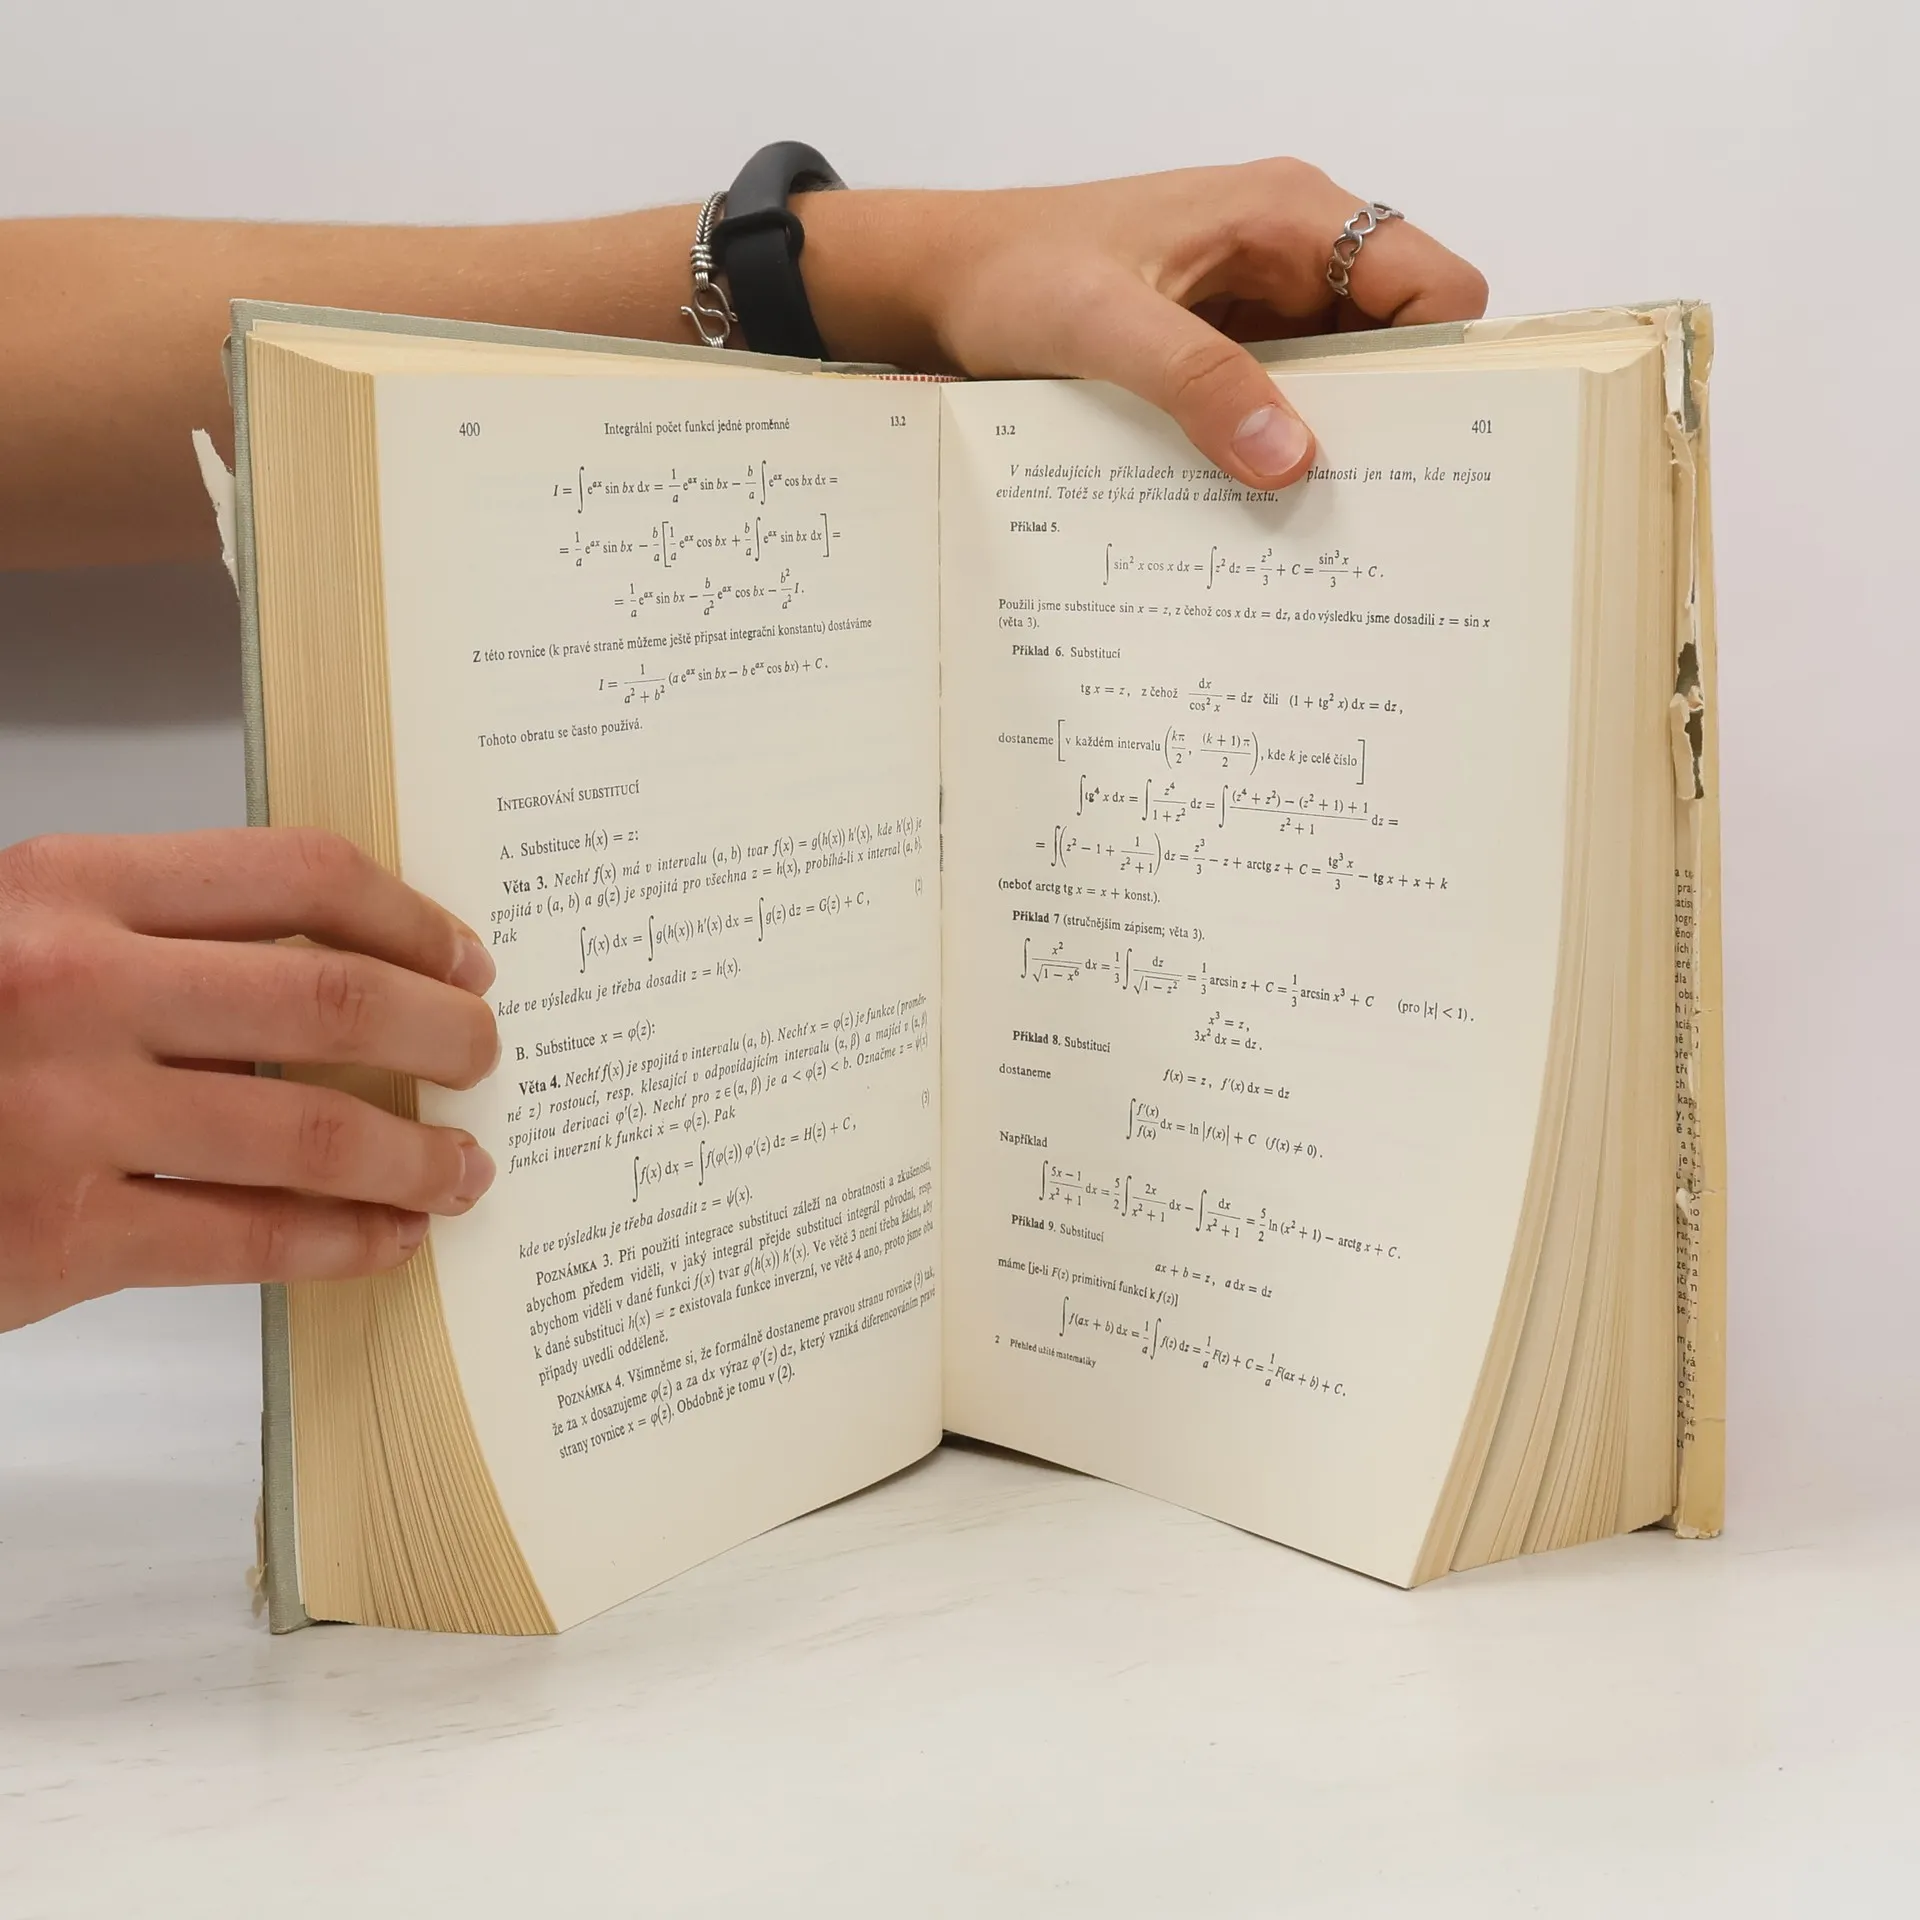 400 Integrální počet funkcí jedné proměnné 13.2
I = ∫ e^{ax} sin bx dx = 1/a e^{ax} sin bx − b/a ∫ e^{ax} cos bx dx =
= 1/a e^{ax} sin bx − b/a [1/a e^{ax} cos bx + b/a ∫ e^{ax} sin bx dx] =
= 1/a e^{ax} sin bx − b/a² e^{ax} cos bx − b²/a² I.
Z této rovnice (k pravé straně můžeme ještě připsat integrační konstantu) dostáváme
I = 1/(a² + b²) (a e^{ax} sin bx − b e^{ax} cos bx) + C.
Tohoto obratu se často používá.
INTEGROVÁNÍ SUBSTITUCÍ
A. Substituce h(x) = z:
Věta 3. Nechť f(x) má v intervalu (a, b) tvar f(x) = g(h(x)) h′(x), kde h′(x) je
spojitá v (a, b) a g(z) je spojitá pro všechna z = h(x), probíhá-li x interval (a, b).
Pak
∫ f(x) dx = ∫ g(h(x)) h′(x) dx = ∫ g(z) dz = G(z) + C, (2)
kde ve výsledku je třeba dosadit z = h(x).
B. Substituce x = φ(z):
Věta 4. Nechť f(x) je spojitá v intervalu (a, b). Nechť x = φ(z) je funkce (proměn-
né z) rostoucí, resp. klesající v odpovídajícím intervalu (α, β) a mající v (α, β)
spojitou derivaci φ′(z). Nechť pro z ∈ (α, β) je a < φ(z) < b. Označme z = ψ(x)
funkci inverzní k funkci x = φ(z). Pak
∫ f(x) dx = ∫ f(φ(z)) φ′(z) dz = H(z) + C, (3)
kde ve výsledku je třeba dosadit z = ψ(x).
POZNÁMKA 3. Při použití integrace substitucí záleží na obratnosti a zkušenosti,
abychom předem viděli, v jaký integrál přejde substitucí integrál původní, resp.
abychom viděli v dané funkci f(x) tvar g(h(x)) h′(x). Ve větě 3 není třeba žádat, aby
k dané substituci h(x) = z existovala funkce inverzní, ve větě 4 ano, proto jsme oba
případy uvedli odděleně.
POZNÁMKA 4. Všimněme si, že formálně dostaneme pravou stranu rovnice (3) tak,
že za x dosazujeme φ(z) a za dx výraz φ′(z) dz, který vzniká diferencováním pravé
strany rovnice x = φ(z). Obdobně je tomu v (2).
13.2 401
V následujících příkladech platnosti jen tam, kde nejsou
evidentní. Totéž se týká příkladů v dalším textu.
Příklad 5.
∫ sin² x cos x dx = ∫ z² dz = z³/3 + C = sin³ x/3 + C.
Použili jsme substituce sin x = z, z čehož cos x dx = dz, a do výsledku jsme dosadili z = sin x
(věta 3).
Příklad 6. Substitucí
tg x = z, z čehož dx/cos² x = dz čili (1 + tg² x) dx = dz,
dostaneme [v každém intervalu (kπ/2, (k + 1)π/2), kde k je celé číslo]
∫ tg⁴ x dx = ∫ z⁴/(1 + z²) dz = ∫ ((z⁴ + z²) − (z² + 1) + 1)/(z² + 1) dz =
= ∫ (z² − 1 + 1/(z² + 1)) dz = z³/3 − z + arctg z + C = tg³ x/3 − tg x + x + k
(neboť arctg tg x = x + konst.).
Příklad 7 (stručnějším zápisem; věta 3).
∫ x²/√(1 − x⁶) dx = 1/3 ∫ dz/√(1 − z²) = 1/3 arcsin z + C = 1/3 arcsin x³ + C (pro |x| < 1).
x³ = z,
3x² dx = dz.
Příklad 8. Substitucí
f(x) = z, f′(x) dx = dz
dostaneme
∫ f′(x)/f(x) dx = ln |f(x)| + C (f(x) ≠ 0).
Například
∫ (5x − 1)/(x² + 1) dx = 5/2 ∫ 2x/(x² + 1) dx − ∫ dx/(x² + 1) = 5/2 ln (x² + 1) − arctg x + C.
Příklad 9. Substitucí
ax + b = z, a dx = dz
máme [je-li F(z) primitivní funkcí k f(z)]
∫ f(ax + b) dx = 1/a ∫ f(z) dz = 1/a F(z) + C = 1/a F(ax + b) + C.
2 Přehled užité matematiky